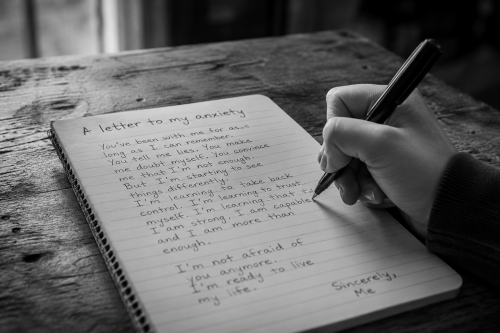 A letter to my anxiety
You've been with me for as
long as I can remember.
You tell me lies. You make
me doubt myself. You convince
me that I'm not enough.
But I'm starting to see
things differently.
I'm learning to take back
control. I'm learning to trust
myself. I'm learning that
I am strong. I am capable
and I am more than
enough.
I'm not afraid of
you anymore.
I'm ready to live
my life.
Sincerely,
Me